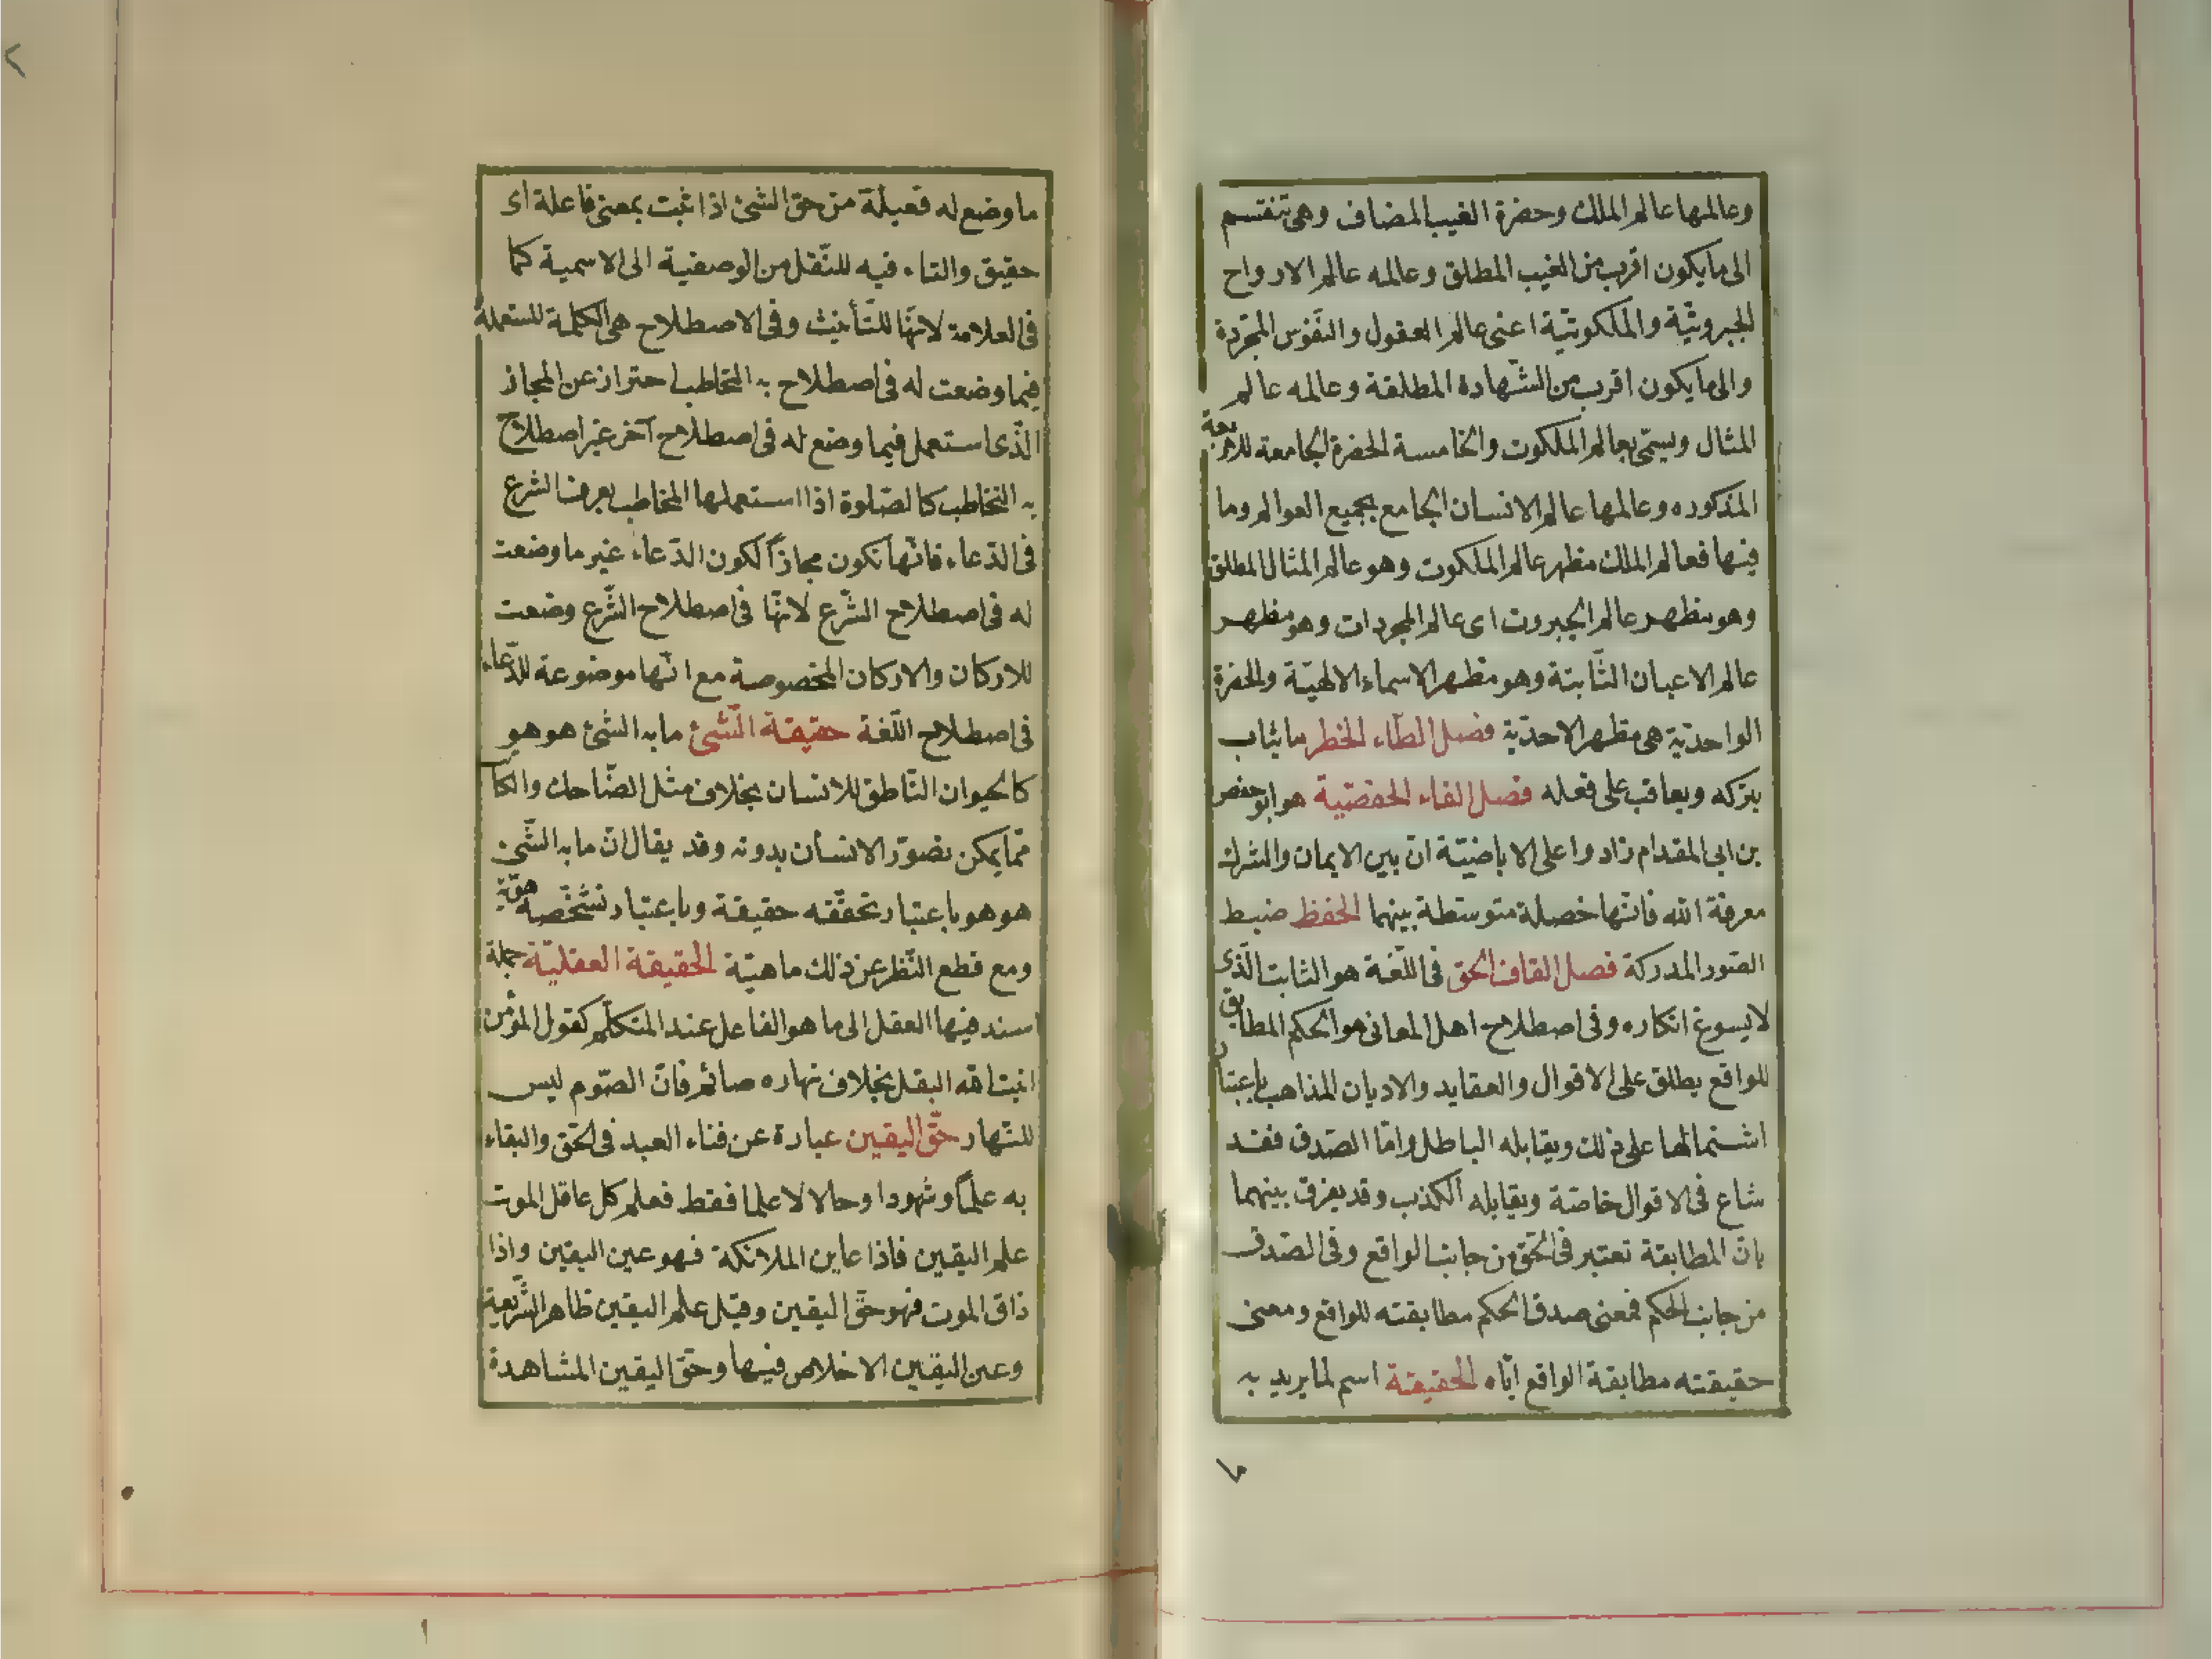 وعالمها عالم الملك وحضرة الغيب المضاف وهى تنقسم
الى ما يكون اقرب من الغيب المطلق وعالمه عالم الارواح
الجبروتية والملكوتية اعنى عالم العقول والنفوس المجردة
والى ما يكون اقرب من الشهادة المطلقة وعالمه عالم
المثال ويسمى بعالم الملكوت والخامسة الحضرة الجامعة للاربعة
المذكوره وعالمها عالم الانسان الجامع بجميع العوالم وما
فيها فعالم الملك مظهر عالم الملكوت وهو عالم المثال المطلق
وهو مظهر عالم الجبروت اى عالم المجردات وهو مظهر
عالم الاعيان الثابتة وهو مظهر الاسماء الالهية والحضرة
الواحدية هى مظهر الاحدية فصل الطاء الخطر ما يثاب
بتركه ويعاقب على فعله فصل الفاء الحفصية هو ابو حفص
بن ابى المقدام زادوا على الاباضية ان بين الايمان والشرك
معرفة الله فانها خصلة متوسطة بينهما الحفظ ضبط
الصور المدركة فصل القاف الحق فى اللغة هو الثابت الذى
لا يسوغ انكاره وفى اصطلاح اهل المعانى هو الحكم المطابق
للواقع يطلق على الاقوال والعقايد والاديان المذاهب باعتبار
اشتمالها على ذلك ويقابله الباطل واما الصدق فقد
شاع فى الاقوال خاصة ويقابله الكذب وقد يفرق بينهما
بان المطابقة تعتبر فى الحق من جانب الواقع وفى الصدق
من جانب الحكم فمعنى صدق الحكم مطابقته للواقع ومعنى
حقيقته مطابقة الواقع اياه الحقيقة اسم لما يريد به
ما وضع له فعيلة من حق الشئ اذا ثبت بمعنى فاعلة اى
حقيق والتاء فيه للنقل من الوصفية الى الاسمية كما
فى العلامة لانها للتأنيث وفى الاصطلاح هى الكلمة المستعملة
فيما وضعت له فى اصطلاح به التخاطب احتراز عن المجاز
الذى استعمل فيما وضع له فى اصطلاح آخر غير اصطلاح
به التخاطب كالصلوة اذا استعملها المخاطب بعرف الشرع
فى الدعاء فانها تكون مجازا لكون الدعاء غير ما وضعت
له فى اصطلاح الشرع لانها فى اصطلاح الشرع وضعت
للاركان والاركان المخصوصة مع انها موضوعة للدعاء
فى اصطلاح اللغة حقيقة الشئ ما به الشئ هو هو
كالحيوان الناطق للانسان بخلاف مثل الضاحك والكا
مما يمكن تصور الانسان بدونه وقد يقال ان ما به الشئ
هو هو باعتبار تحققه حقيقة وباعتبار تشخصه هوية
ومع قطع النظر عن ذلك ماهية الحقيقة العقلية جملة
اسند فيها العقل الى ما هو الفاعل عند المتكلم كقول المؤمن
انبت الله البقل بخلاف نهاره صائم فان الصوم ليس
للنهار حق اليقين عبارة عن فناء العبد فى الحق والبقاء
به علما وشهودا وحالا لا علما فقط فعلم كل عاقل الموت
علم اليقين فاذا عاين الملائكة فهو عين اليقين واذا
ذاق الموت فهو حق اليقين وقيل علم اليقين ظاهر الشريعة
وعين اليقين الاخلاص فيها وحق اليقين المشاهدة